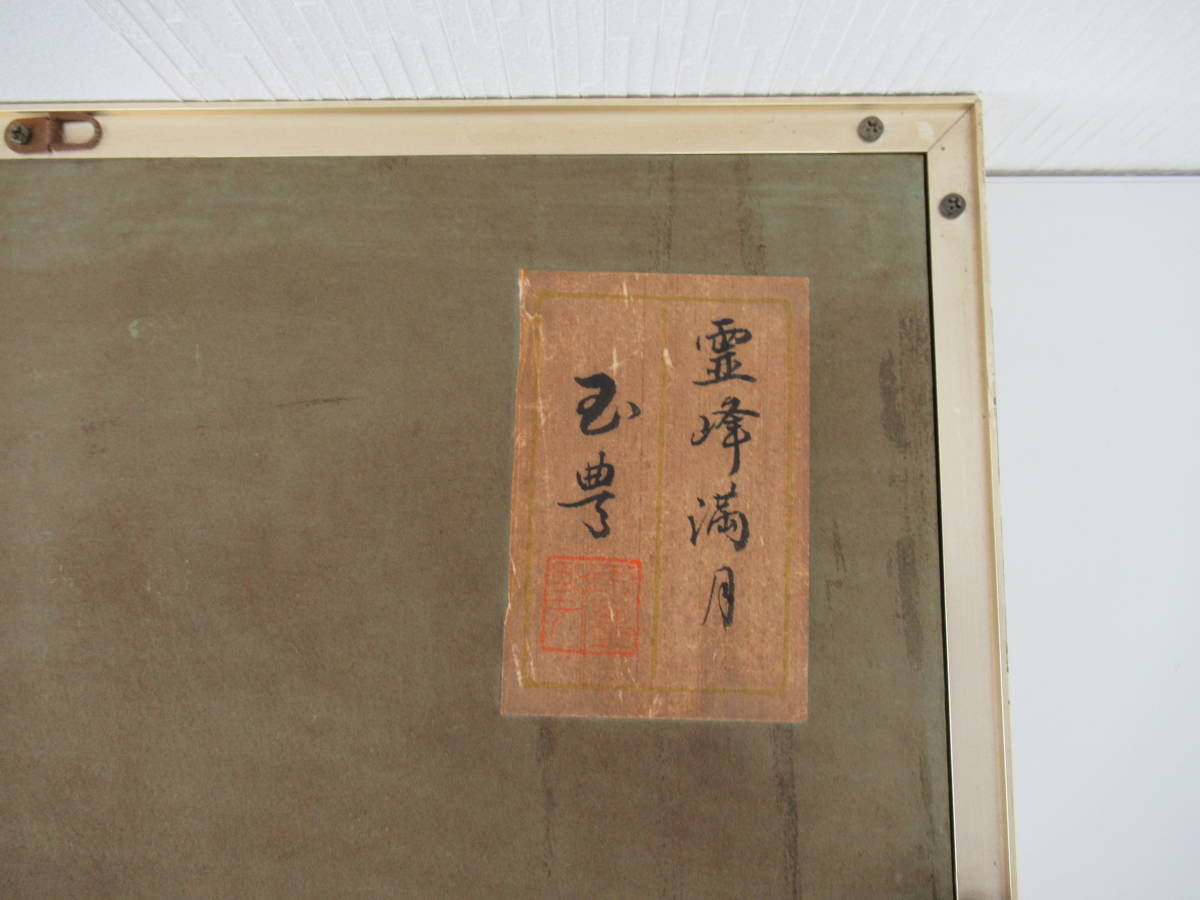 霊峰満月
玉豊